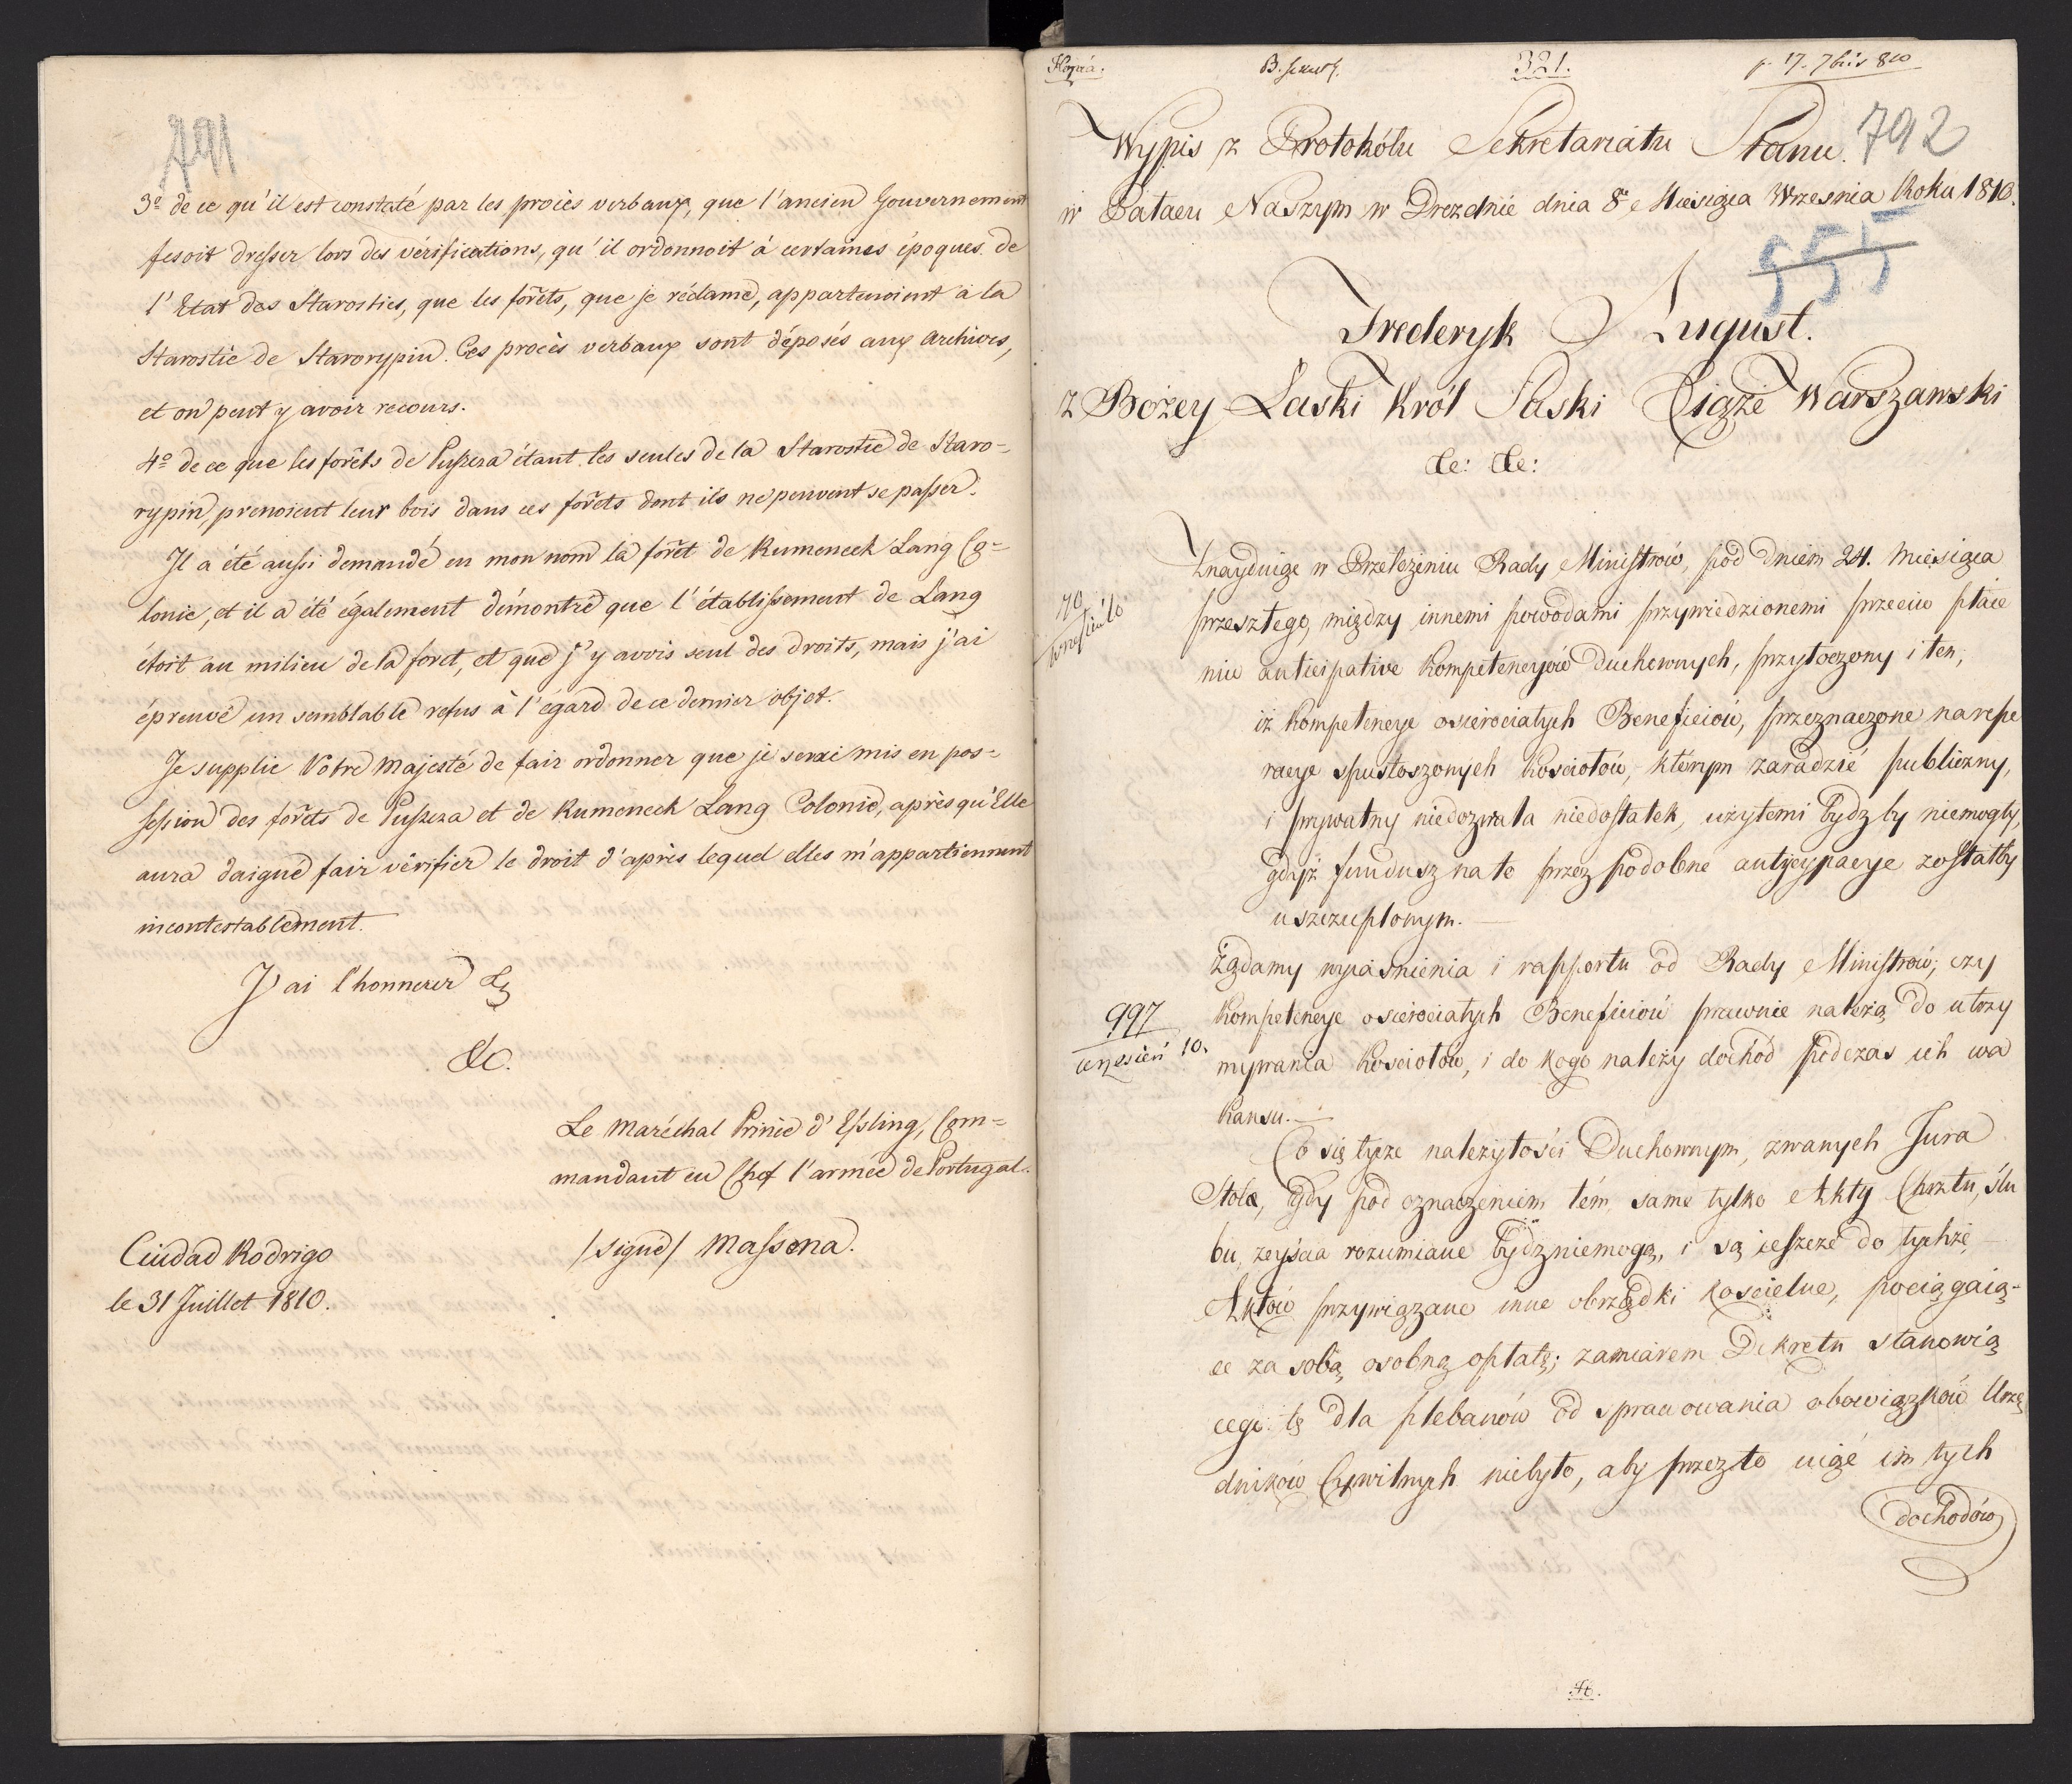 791
3º de ce qu'il est constaté par les procès verbaux, que l'ancien Gouvernement
fesoit dresser lors des vérifications, qu'il ordonnoit à certaines époques de
l'Etat des Starosties, que les forêts, que je réclame, appartenoient à la
Starostie de Starorypin. Ces procès verbaux sont déposés aux Archives,
et on peut y avoir recours.
4º de ce que les forêts de Puszcza étant les seules de la Starostie de Staro=
rypin, prenoient leur bois dans ces forêts dont ils ne peuvent se passer.
Il a été aussi demandé en mon nom la forêt de Kumeneck Lang Co=
lonie, et il a été également démontré que l'établissement de Lang
étoit au milieu de la foret, et que j'y avois seul des droits, mais j'ai
épreuvé un semblable refus à l'égard de ce dernier objet.
Je supplie Votre Majesté de fair ordonner que je serai mis en pos=
session des forêts de Puszcza et de Kumeneck Lang Colonie, après qu'Elle
aura daigné fair vérifier le droit d'après lequel elles m'appartiennent
incontestablement.
J'ai l'honneur &
&c.
Le Maréchal Prince d'Essling, Com=
mandant en Chef l'armée de Portugal.
/signé/ Massena.
Ciudad Rodrigo
le 31 Juillet 1810.
Kopia. 321. 17. 7bris 810
Wypis z Protokółu Sekretariatu Stanu. 792
w Pałacu Naszym w Dreznie dnia 8º Miesiąca Wrzesnia Roku 1810.
555
Frederyk August.
z Bożey Łaski Król Saski Xiąże Warszawski
&c: &c:
Znayduige w Przełożeniu Rady Ministrów, pod dniem 24. Miesiąca
przeszłego, między innemi powodami przywiedzionemi przeciw płace
niu anticipative kompetencyów Duchownych, przytoczony i ten,
iż kompetencye osierociałych Beneficiów, przeznaczone na repe
racye spustoszonych kościołów, którym zaradzić publiczny,
i prywatny niedozwala niedostatek, użytemi bydz by niemogły,
gdyż fundusz na to przez podobne antycypacye zostałby
uszczuplonym.
Żądamy wyiaśnienia i rapportu od Rady Ministrów; czy
997
wrzesień 10.
kompetencye osierociałych Beneficiów prawnie należą do utrzy
mywania kościołów, i do kogo należy dochód podczas ich wa
kansu.
Co się tycze należytości Duchownym, zwanych Jura
Stolæ, gdy pod oznaczeniem tém same tylko Akty Chrztu, ślu
bu, zeyścia rozumiane bydz niemogą, i są ieszcze do tychże
Aktów przywiązane inne obrządki kościelne, pociągaią-
ce za sobą osobną opłatę; zamiarem Dekretu stanowią
cego tę dla plebanów od sprawowania obowiązków Urzę
dników Cywilnych niebyło, aby przezto uiąć im tych
dochodów